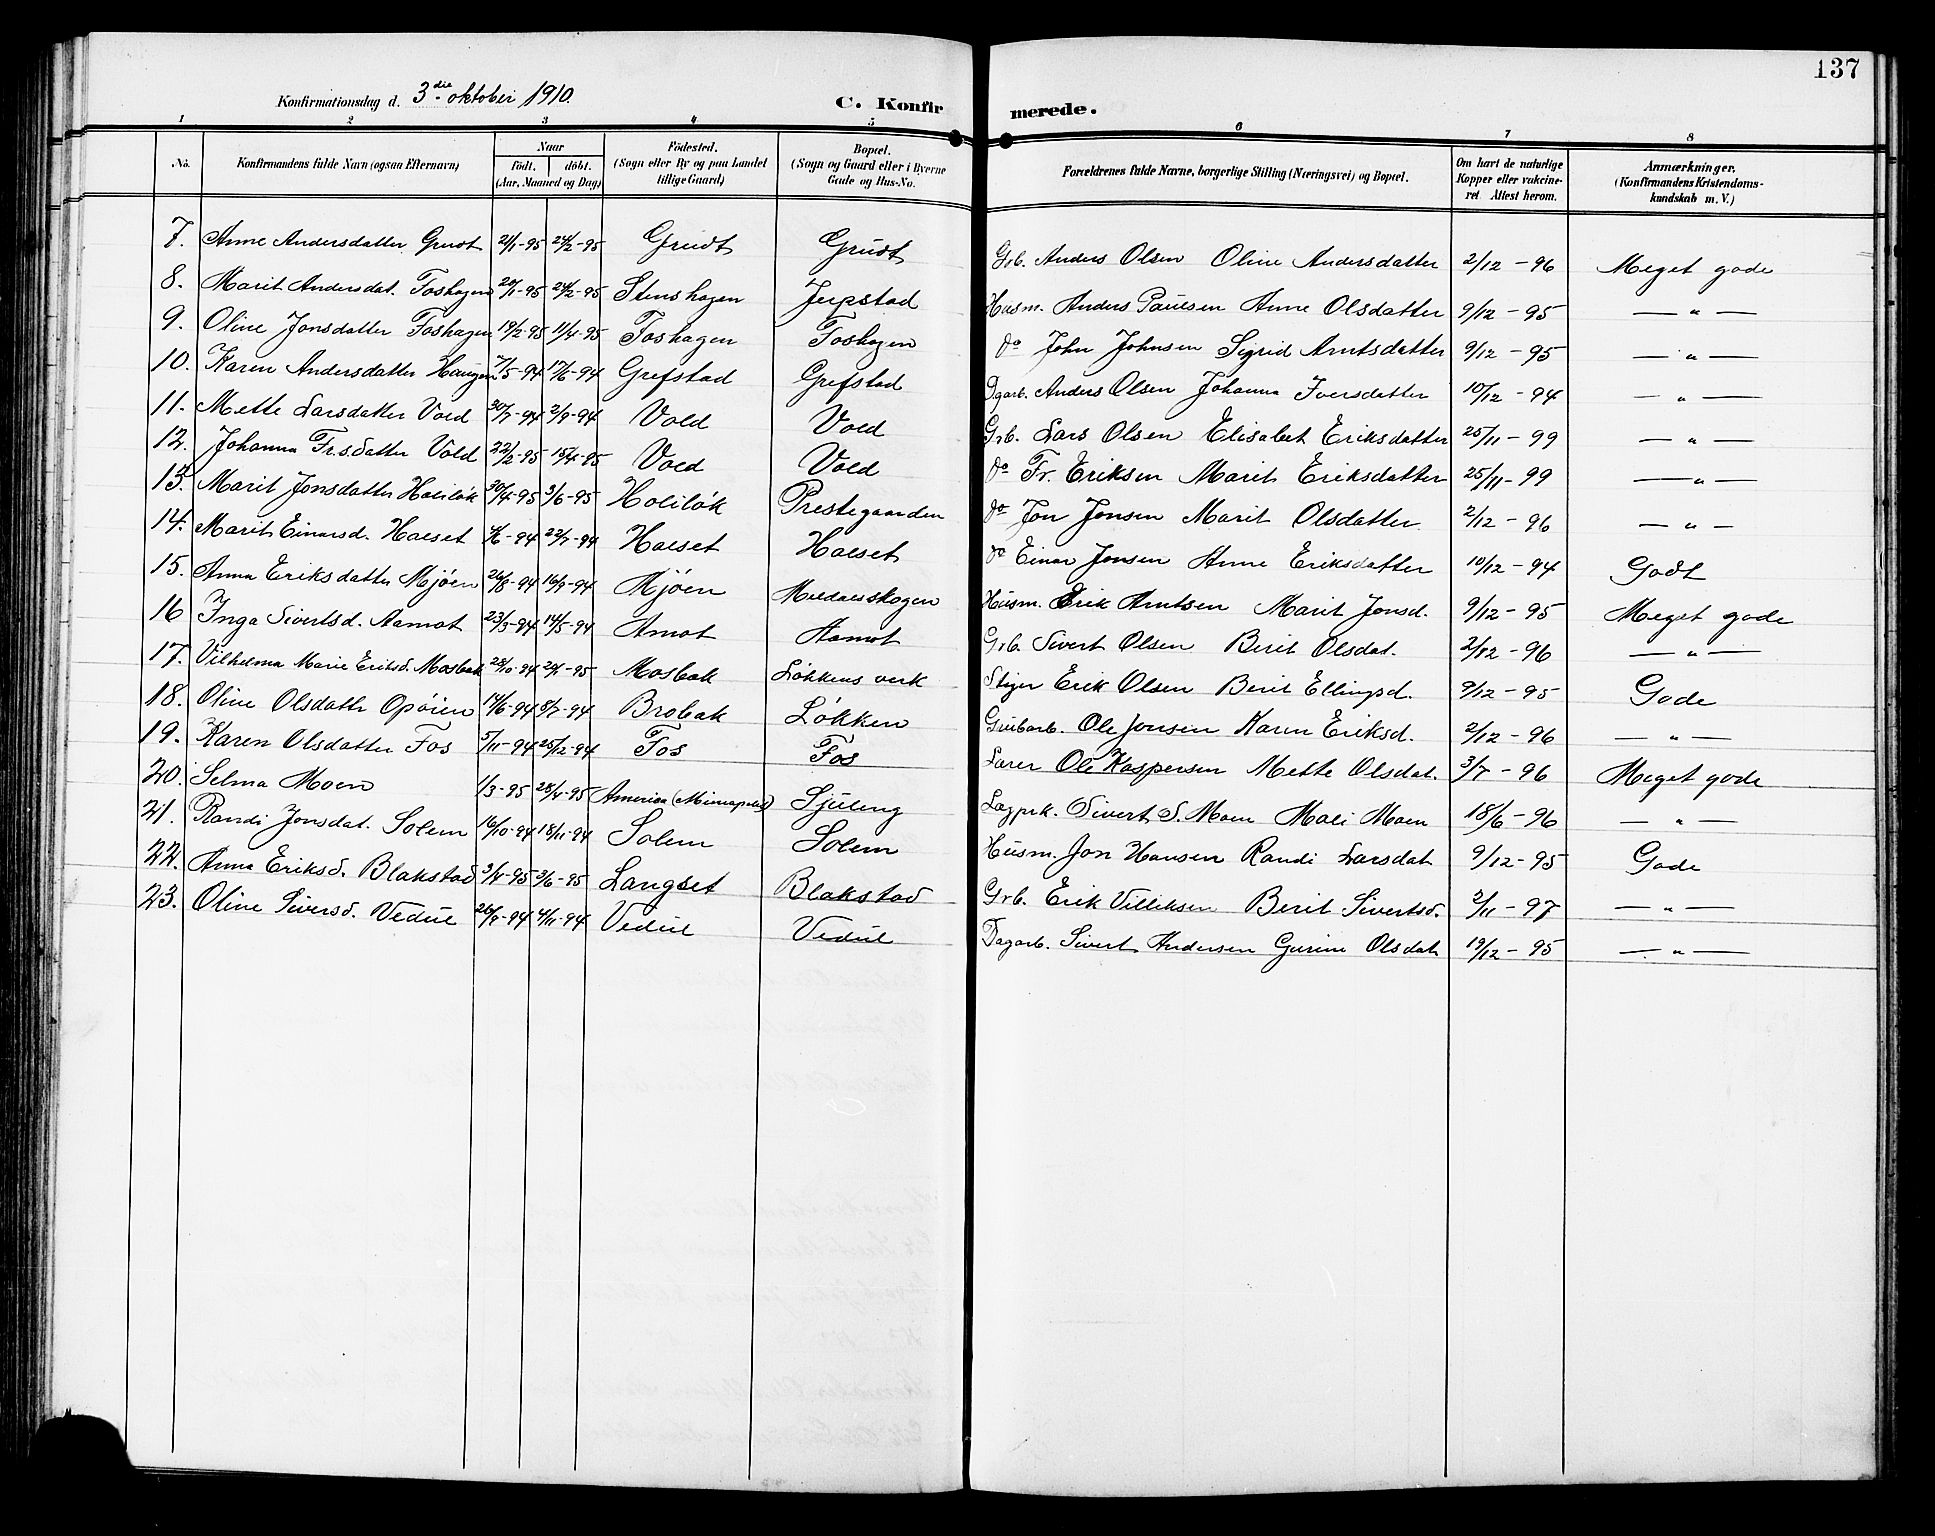 137
Konfirmationsdag d. 3die oktober 1910.
C. Konfirmerede.
1 2 3 4 5 6 7 8
No. Konfirmandens fulde Navn (ogsaa Efternavn) Naar født. døbt. (Aar, Maaned og Dag) Fødested. (Sogn eller By og paa Landet tillige Gaard) Bopæl. (Sogn og Gaard eller i Byerne Gade og Hus-No. Forældrenes fulde Navne, borgerlige Stilling (Næringsvei) og Bopæl. Om havt de naturlige Kopper eller vakcineret Attest herom. Anmærkninger. (Konfirmandens Kristendomskundskab m. V.)
7. Anne Andersdatter Grudt 21/1-95 24/2-95 Grudt Grudt Grb. Anders Olsen Oline Andersdatter 2/12-96 Meget gode
8. Marit Andersdat. Foshagen 24/2-95 Stenshagen Jerpstad Husm. Anders Paulsen Anne Olsdatter 9/12-95 — " —
9. Oline Jonsdatter Foshagen 19/2-95 11/4-95 Foshagen Foshagen do John Johnsen Sigrid Arntsdatter 9/12-95 — " —
10. Karen Andersdatter Haugen 7/5-94 17/6-94 Grefstad Grefstad Dgarb. Anders Olsen Johanna Iversdatter 10/12-94 — " —
11. Mette Larsdatter Vold 30/7-94 2/9-94 Vold Vold Grb. Lars Olsen Elisabet Eriksdatter 25/11-99 — " —
12. Johanna Frsdatter Vold 22/2-95 15/4-95 Vold Vold do Fr. Eriksen Marit Eriksdatter 25/11-99 — " —
13. Marit Jonsdatter Holiløk 30/4-95 3/6-95 Holiløk Prestegaarden do Jon Jonsen Marit Olsdatter 2/12-96 — " —
14. Marit Einarsd. Halset 4/6-94 22/7-94 Halset Halset do Einar Jonsen Anne Eriksdatter 10/12-94 Godt
15. Anna Eriksdatter Mjøen 26/8-94 16/9-94 Mjøen Meldalsskogen Husm. Erik Arntsen Marit Jonsd. 9/12-95 Meget gode
16 Inga Sivertsd. Aamot 23/3-94 14/5-94 Amot Aamot Grb. Sivert Olsen Berit Olsdat. 2/12-96 — " —
17. Vilhelma Marie Eriksd. Mosbak 28/10-94 Mosbak Løkkens verk Stiger Erik Olsen Berit Ellingsd. 9/12-95 Gode
18. Oline Olsdattr Opøien 14/6-94 8/7-94 Brobak Løkken Grubarb. Ole Jonsen Karen Eriksd. 2/12-96 — " —
19. Karen Olsdatter Fos 5/11-94 25/12-94 Fos Fos Lærer Ole Kaspersen Mette Olsdat. 3/7-96 Meget gode
20. Selma Moen 1/3-95 28/4-95 America (Minneapolis) Sjuleng Lægprk. Sivert S. Moen Mali Moen 18/6-96 — " —
21. Randi Jonsdat. Solem 16/10-94 18/11-94 Solem Solem Husm. Jon Hansen Randi Larsdat 9/12-95 Gode
22. Anna Eriksd. Blakstad 3/4-95 3/6-95 Langset Blakstad Grb. Erik Villiksen Berit Sivertsd. 2/11-97 — " —
23. Oline Siversd. Vedul 26/9-94 4/11-94 Vedul Vedul Dagarb. Sivert Andersen Gurine Olsdat 19/12-95 — " —